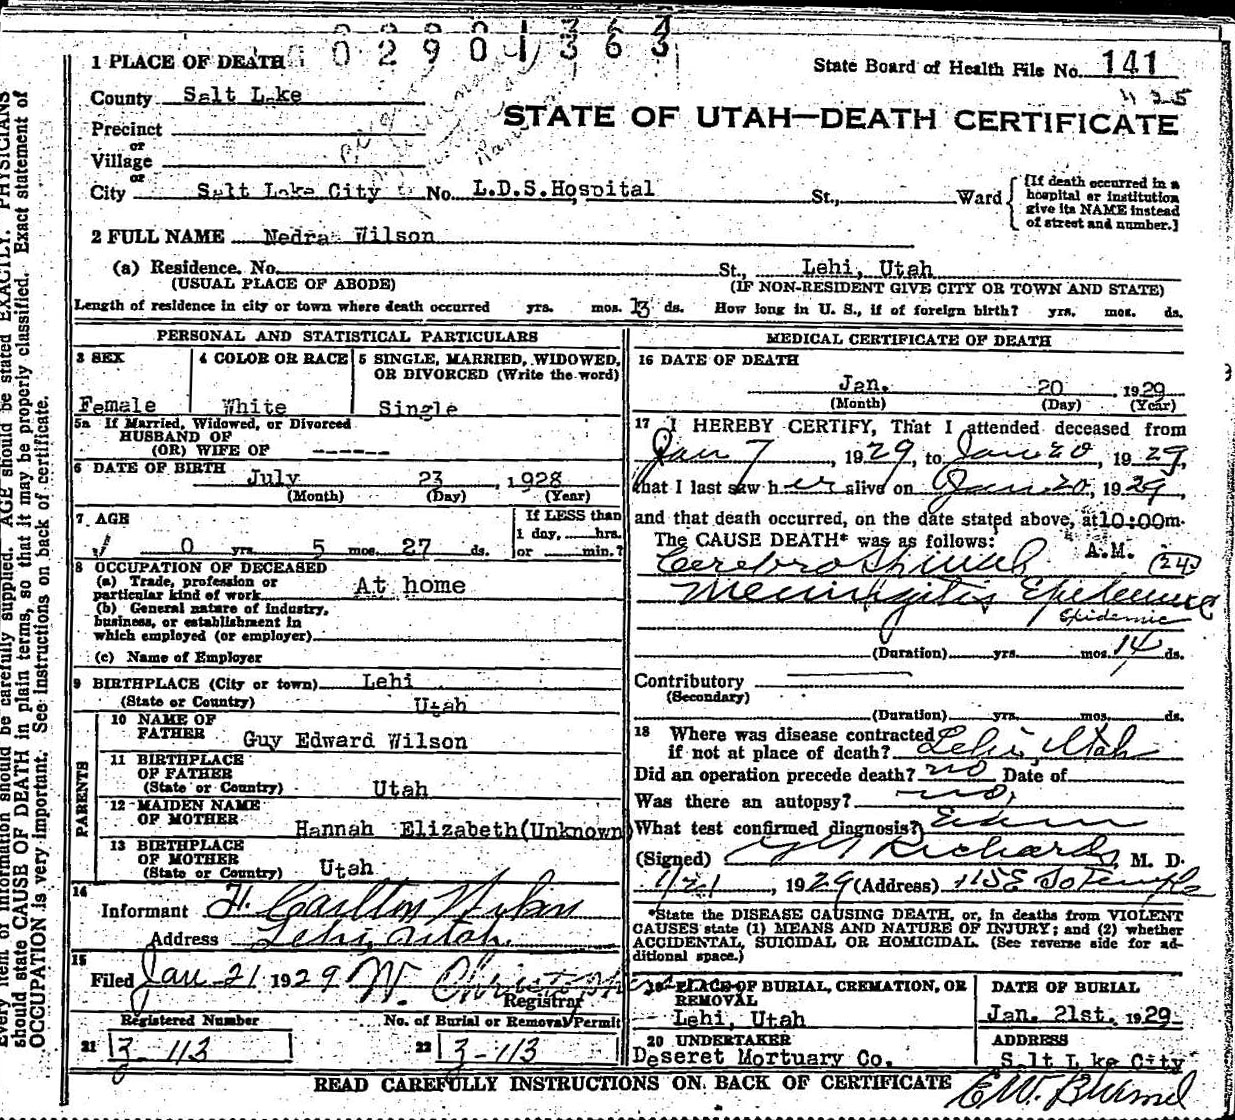 02901363
1 PLACE OF DEATH
State Board of Health File No. 141
425
County Salt Lake
STATE OF UTAH—DEATH CERTIFICATE
Precinct
or
Village
or
City Salt Lake City No. L.D.S.Hospital St., Ward
[If death occurred in a hospital or institution give its NAME instead of street and number.]
2 FULL NAME Nedra Wilson
(a) Residence. No. St., Lehi, Utah
(USUAL PLACE OF ABODE) (IF NON-RESIDENT GIVE CITY OR TOWN AND STATE)
Length of residence in city or town where death occurred yrs. mos. 13 ds. How long in U. S., if of foreign birth? yrs. mos. ds.
PERSONAL AND STATISTICAL PARTICULARS
3 SEX 4 COLOR OR RACE 5 SINGLE, MARRIED, WIDOWED,
OR DIVORCED (Write the word)
Female White Single
5a If Married, Widowed, or Divorced
HUSBAND OF
(OR) WIFE OF ------
6 DATE OF BIRTH July 23, 1928
(Month) (Day) (Year)
7 AGE If LESS than
1 day, hrs.
0 yrs. 5 mos. 27 ds. or min.?
8 OCCUPATION OF DECEASED
(a) Trade, profession or
particular kind of work At home
(b) General nature of industry,
business, or establishment in
which employed (or employer)
(c) Name of Employer
9 BIRTHPLACE (City or town) Lehi
(State or Country) Utah
PARENTS
10 NAME OF
FATHER Guy Edward Wilson
11 BIRTHPLACE
OF FATHER
(State or Country) Utah
12 MAIDEN NAME
OF MOTHER Hannah Elizabeth(Unknown)
13 BIRTHPLACE
OF MOTHER
(State or Country) Utah
14
Informant H. Carlton
Address Lehi, Utah.
15
Filed Jan 21 1929 W. Christopherson
Registrar
Registered Number No. of Burial or Removal Permit
21 3-113 22 3-113
MEDICAL CERTIFICATE OF DEATH
16 DATE OF DEATH
Jan. 20 1929
(Month) (Day) (Year)
17 I HEREBY CERTIFY, That I attended deceased from
Jan 7, 1929, to Jan 20, 1929,
that I last saw her alive on Jan 20, 1929,
and that death occurred, on the date stated above, at 10:00m.
The CAUSE DEATH* was as follows: A.M.
Cerebro Spinal (24)
Meningitis Epidemic
Epidemic
(Duration) yrs. mos. 14 ds.
Contributory
(Secondary)
(Duration) yrs. mos. ds.
18 Where was disease contracted
if not at place of death? Lehi, Utah
Did an operation precede death? no Date of
Was there an autopsy? no.
What test confirmed diagnosis? Exam
(Signed) G G Richards, M. D.
1/21, 1929 (Address) 115 E So Temple
*State the DISEASE CAUSING DEATH, or, in deaths from VIOLENT
CAUSES state (1) MEANS AND NATURE OF INJURY; and (2) whether
ACCIDENTAL, SUICIDAL OR HOMICIDAL. (See reverse side for ad-
ditional space.)
19 PLACE OF BURIAL, CREMATION, OR DATE OF BURIAL
REMOVAL
Lehi, Utah Jan. 21st. 1929
20 UNDERTAKER ADDRESS
Deseret Mortuary Co. Salt Lake City
READ CAREFULLY INSTRUCTIONS ON BACK OF CERTIFICATE
should state CAUSE OF DEATH in plain terms, so that it may be properly classified. Exact statement of
OCCUPATION is very important. See instructions on back of certificate.